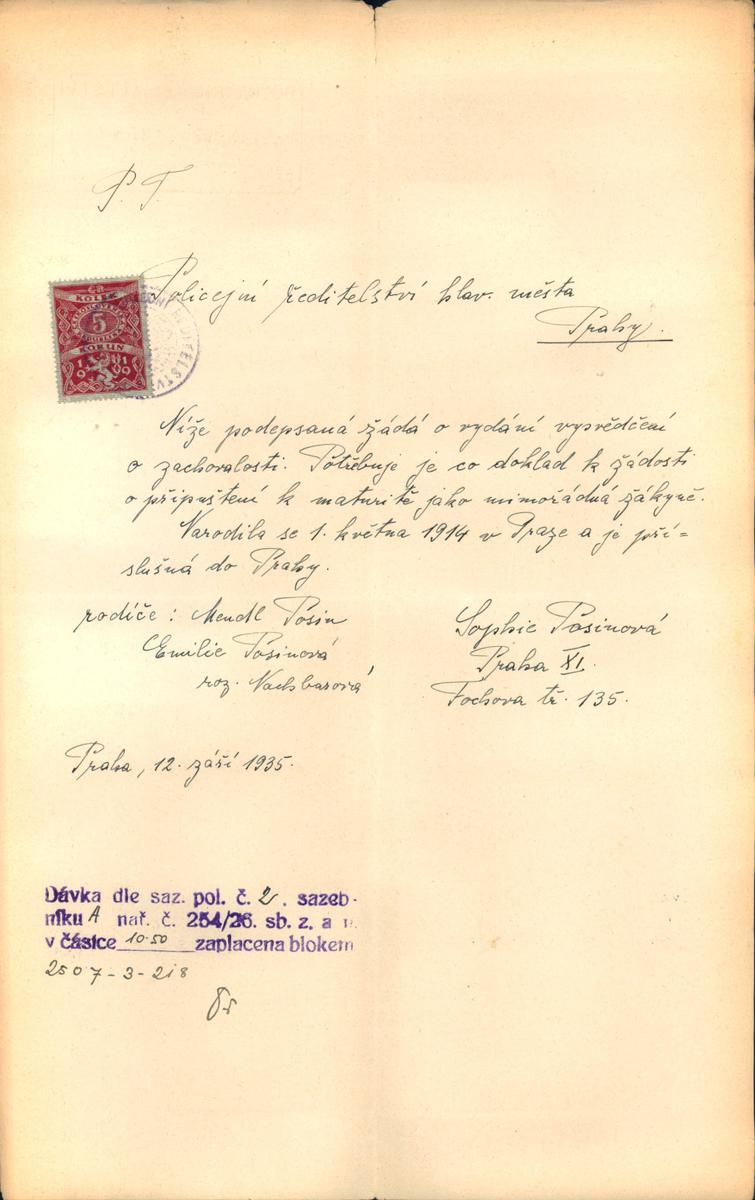 P. T.
Policejní ředitelství hlav. města
Prahy.
KOLEK
5
KORUN
1919
Níže podepsaná žádá o vydání vysvědčení
o zachovalosti. Potřebuje je co doklad k žádosti
o připuštění k maturitě jako mimořádná žákyně.
Narodila se 1. května 1914 v Praze a je pří=
slušná do Prahy.
rodiče: Mendl Pósin
Emilie Pósinová
roz. Nachbarová
Sophie Pósinová
Praha XI.
Fochova tř. 135.
Praha, 12. září 1935.
Dávka dle saz. pol. č. 2. sazeb-
níku A nař. č. 254/26. sb. z. a n.
v částce 10.50 zaplacena blokem
2507-3-218